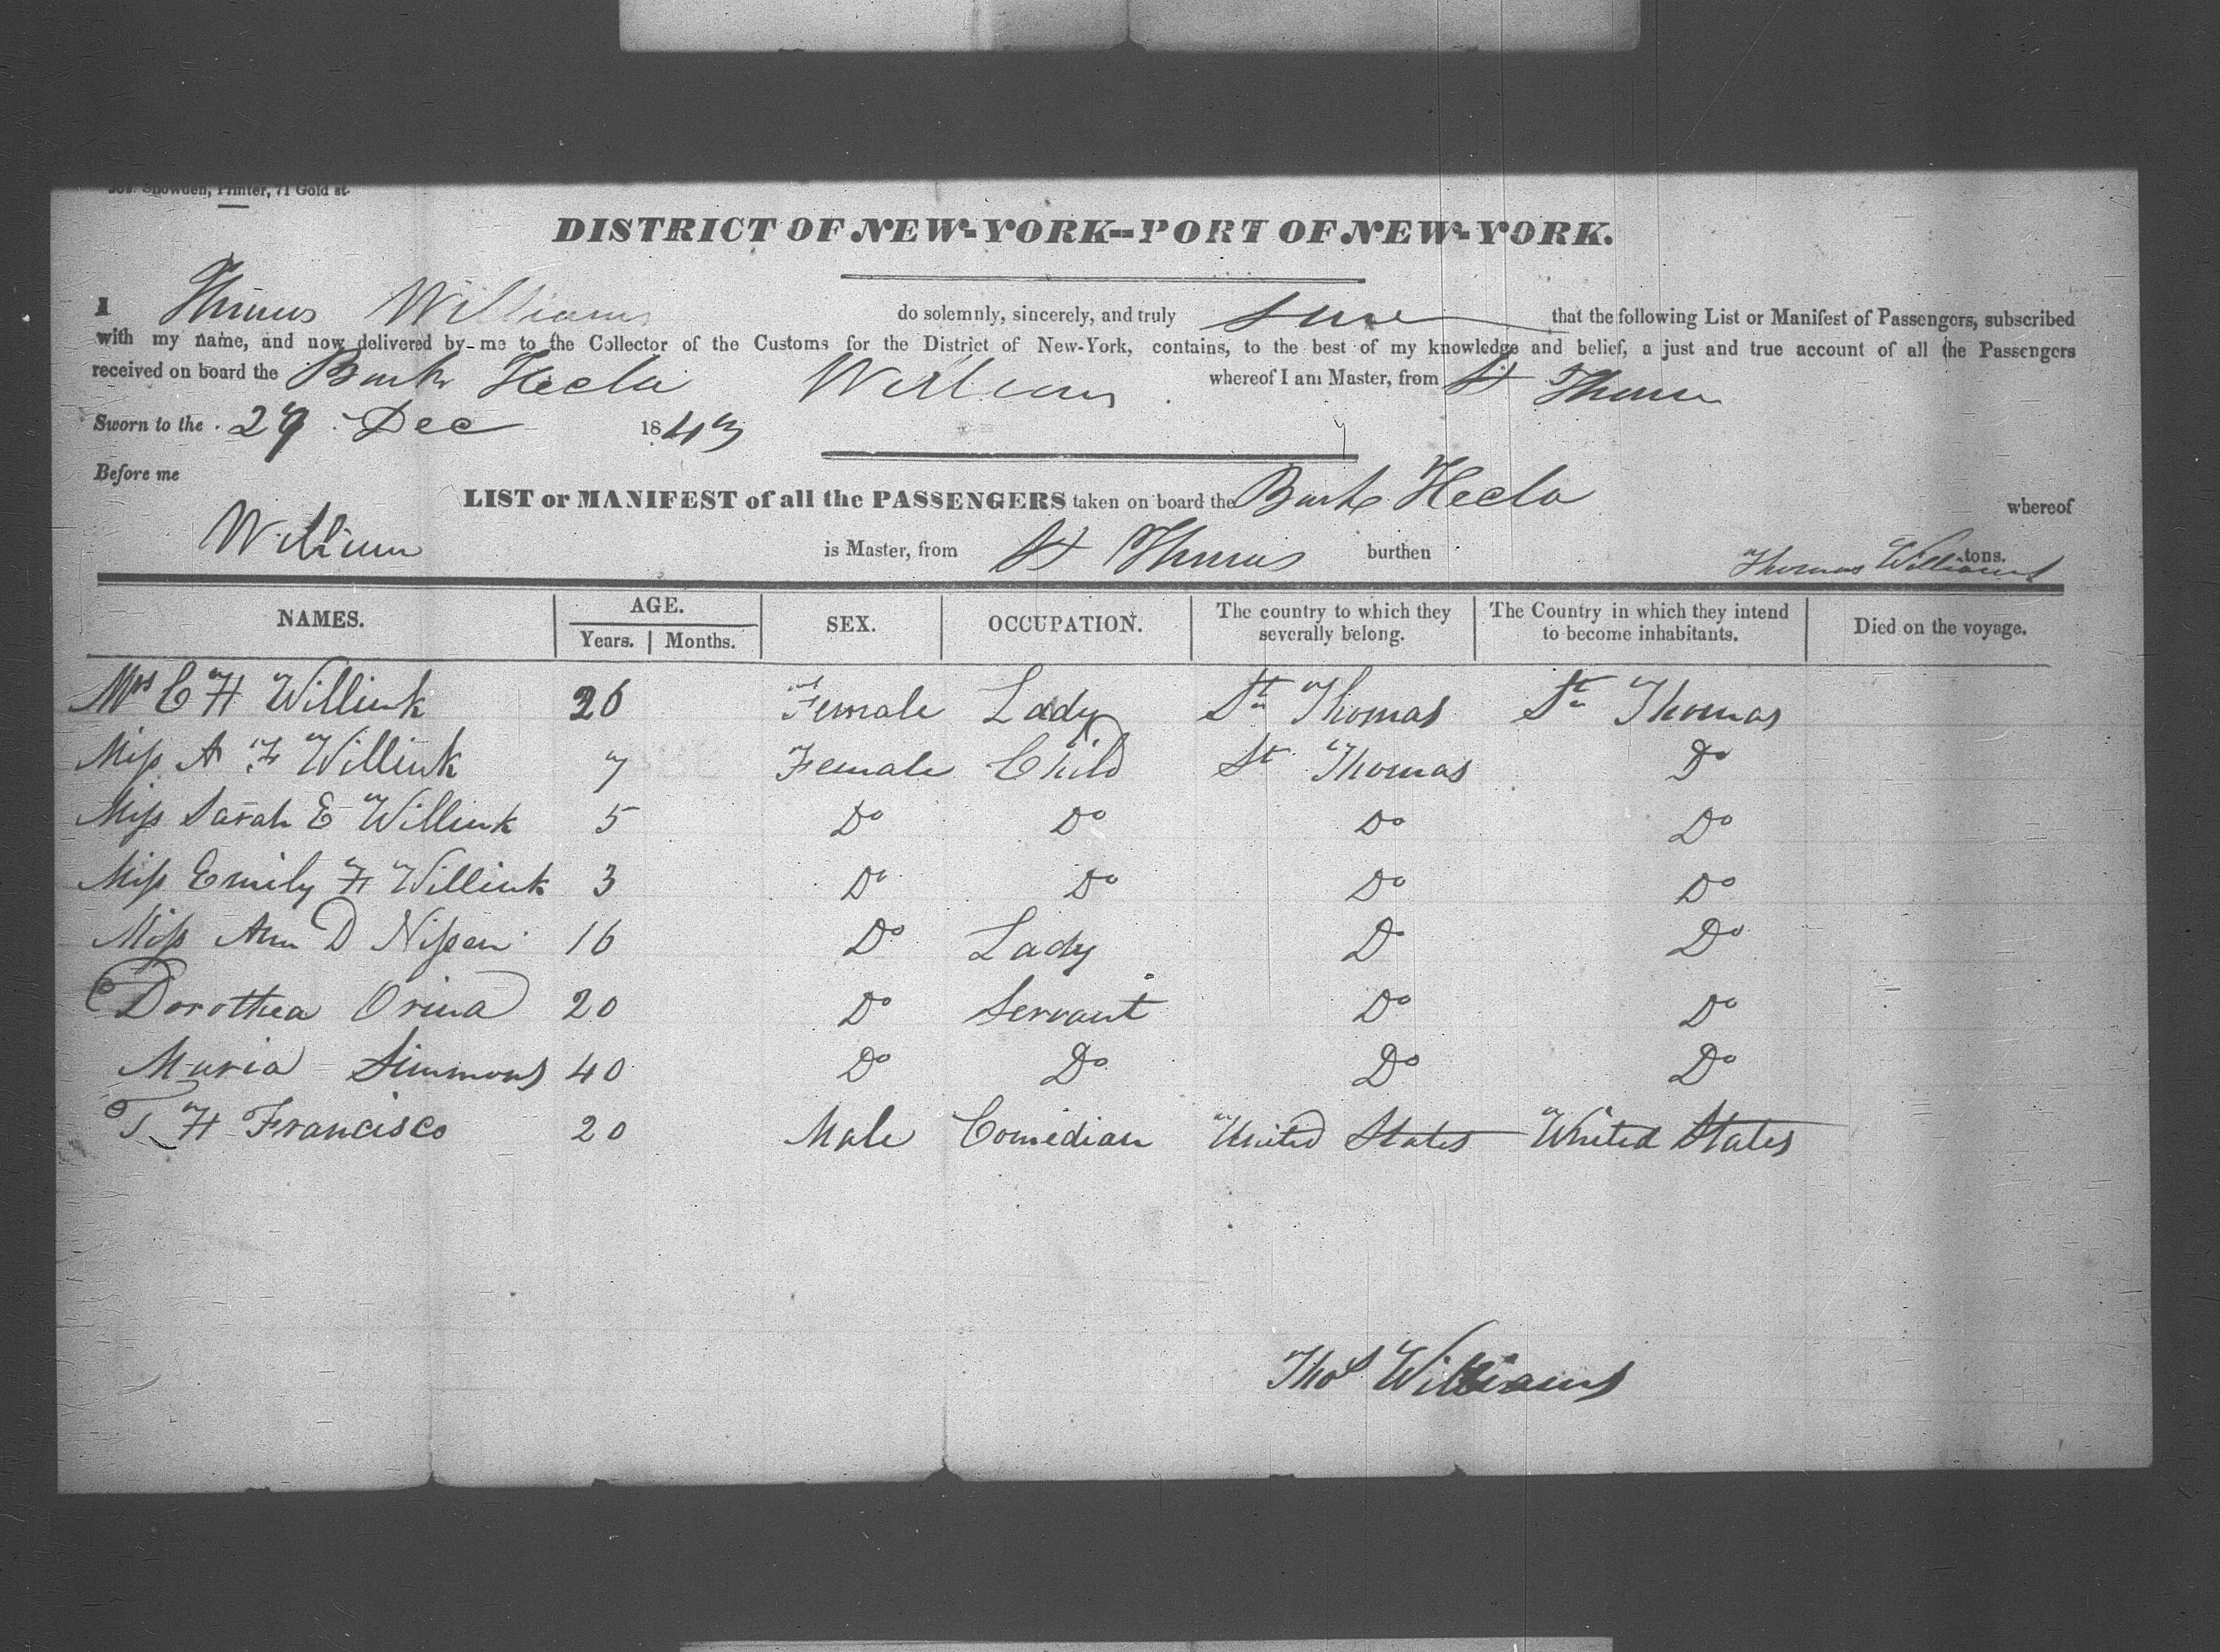 Jos. Snowden, Printer, 71 Gold st.
DISTRICT OF NEW-YORK--PORT OF NEW-YORK.
I Thomas Williams do solemnly, sincerely, and truly that the following List or Manifest of Passengers, subscribed
with my name, and now delivered by me to the Collector of the Customs for the District of New-York, contains, to the best of my knowledge and belief, a just and true account of all the Passengers
received on board the Bark Hecla Williams whereof I am Master, from St Thomas
Sworn to the 29 Dec 1843
Before me
LIST or MANIFEST of all the PASSENGERS taken on board the Bark Hecla whereof
Williams is Master, from St Thomas burthen tons. Thomas Williams
NAMES. AGE. Years. Months. SEX. OCCUPATION. The country to which they severally belong. The Country in which they intend to become inhabitants. Died on the voyage.
Mrs C H Willink 26 Female Lady St Thomas St Thomas
Miss A F Willink 7 Female Child St Thomas Do
Miss Sarah E Willink 5 Do Do Do Do
Miss Emily H Willink 3 Do Do Do Do
Miss Ann D Nissen 16 Do Lady Do Do
Dorothea Orina 20 Do Servant Do Do
Maria Simmons 40 Do Do Do Do
T H Francisco 20 Male Comedian United States United States
Thos Williams